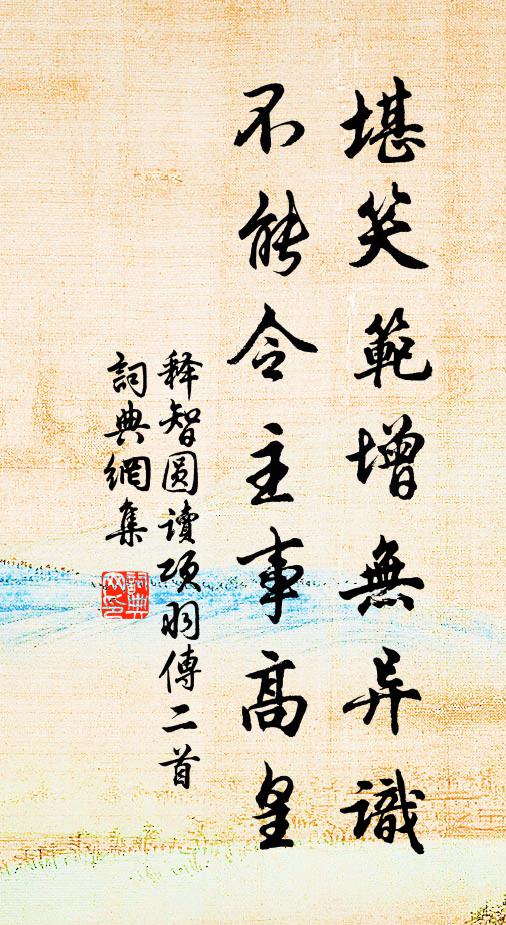 堪笑範增無异識
不能令主事高皇
释智圆读項羽傳二首
詞典網集